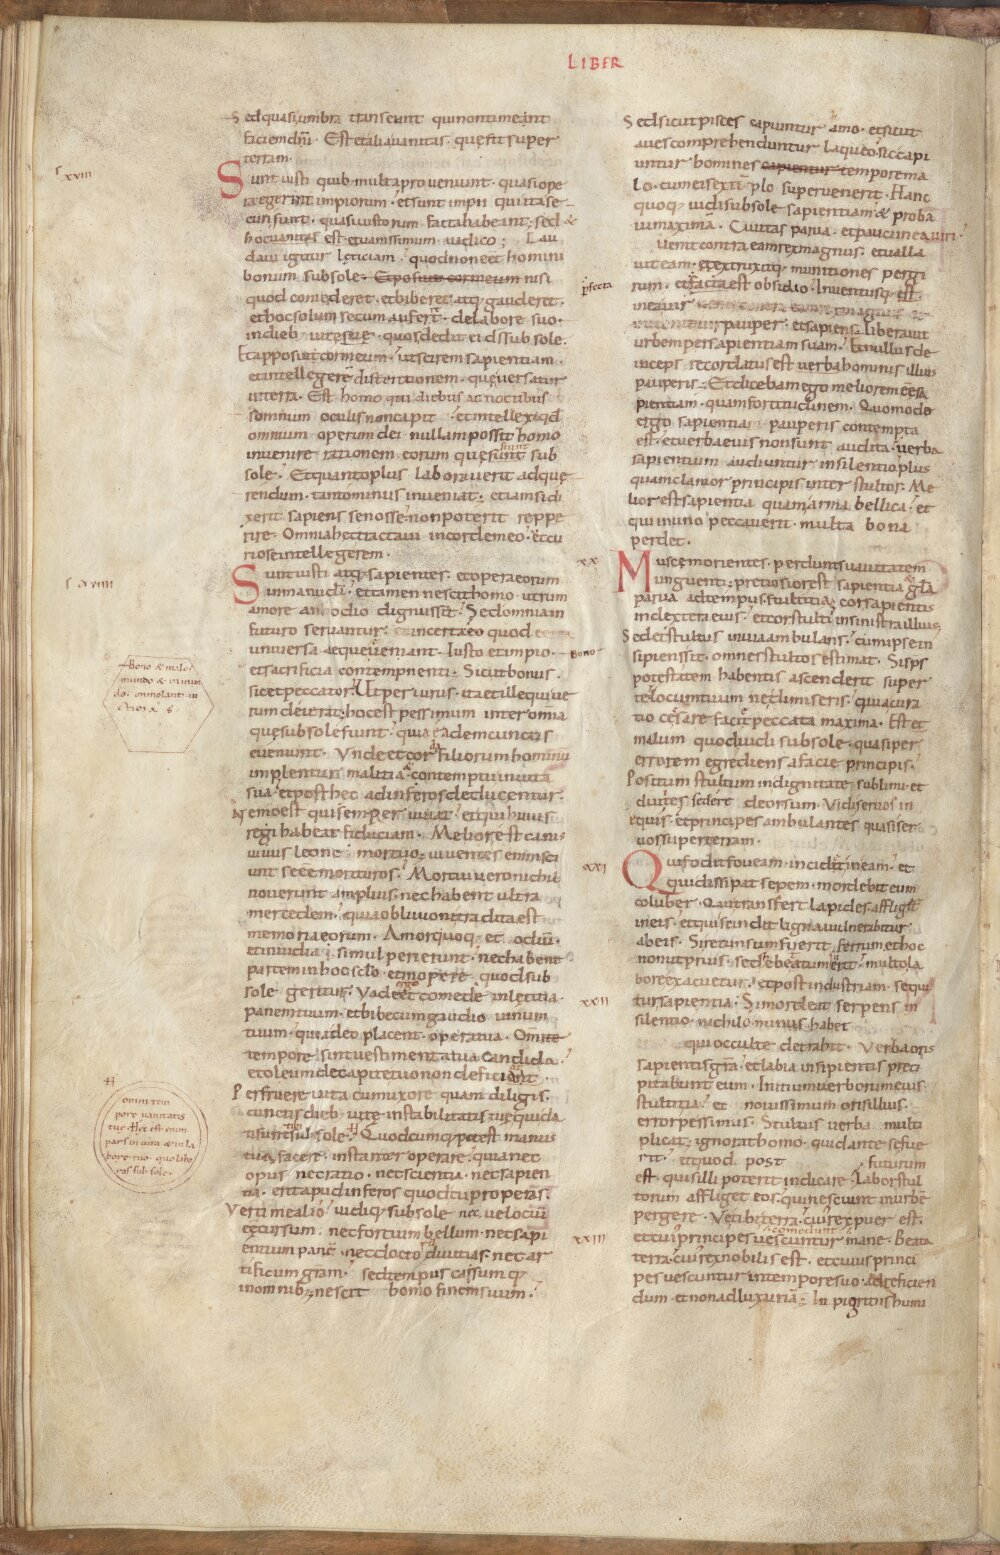 LIBER
Sed quasi umbra transeunt qui non timeant
faciem dñi. Est et alia uanitas. quę fit super
terram.
xviii
Sunt iusti quib; multa proueniunt. quasi ope
ra egerint impiorum. et sunt impii qui ita se
curi sunt. quasi iustorum facta habeant. sed &
hoc uanitas est. euanissimum iudico; Lau
daui igitur lęticiam. quod non eet homini
bonum sub sole. Et posui cor meum nisi
quod comederet. et biberet. atq; gauderet.
et hoc solum secum auferret. de labore suo.
in dieb; uitę suę. quos dedit ei ds sub sole.
Et apposui cor meum. ut scirem sapientiam.
et intellegerē distentionem. quę uersatur
in terra. Est homo qui diebus ac noctibus
somnum oculis non capit. et intellexi qd
omnium operum dei nullam possit homo
inuenire rationem. eorum quę sunt sub
sole. Et quanto plus laborauerit ad quę
rendum. tanto minus inueniat. etiam si di
xerit sapiens se nosse non poterit reppe
rire. Omnia hec tractaui in corde meo. ut cu
riose intellegerem.
xviiii
Sunt iusti atq; sapientes. et opera eorum
in manu di. et tamen nescit homo utrum
amore an odio dignus sit. Sed omnia in
futuro seruantur incerta eo quod
uniuersa ęque ueniant. Iusto et impio. Bono
et sacrificia contempnenti. Sicut bonus.
sic et peccator. Ut periurus. ita et ille qui ue
rum deierat. hoc est pessimum inter omnia
quę sub sole fiunt. quia eadem cunctis
eueniunt. Vnde et cor filiorum hominum
implentur malitia. & contemptu in uita
sua. et post hec ad inferos deducentur.
Nemo est qui semper uiuat. et qui huius
rei habeat fiduciam. Melior est canis
uiuus leone mortuo. uiuentes enim sci
unt se ee morituros. Mortui uero nichil
nouerunt amplius. nec habent ultra
mercedem. quia obliuioni tradita est
memoria eorum. Amor quoq; et odiū.
et inuidia simul perierunt. nec habent
partem in hoc sclo. et in opere quod sub
sole geritur. Vade ergo et comede in lętitia
panem tuum. et bibe cum gaudio uinum
tuum. quia deo placent opera tua. Omni
tempore sint uestimenta tua candida.
et oleum de capite tuo non deficiat.
Perfruere uita cum uxore quam diligis.
cunctis dieb; uitę instabilitatis tuę qui da
ti sunt tibi sub sole. Quodcumq; potest manus
tua facere. instanter operare. quia nec
opus nec ratio. nec scientia. nec sapien
tia. erit apud inferos quo tu properas.
Verti me alio. uidiq; sub sole nec uelociū
ee cursum. nec fortium bellum. nec sapi
entium panē. nec doctorū diuitias. nec ar
tificum grām. sed tempus casumq;
in omnib; nescit homo finem suum.
Bono & malo.
mundo & inmun
do. immolanti ui
ctimas &
omni tem
pore uanitatis
tuę. Hęc est enim
pars in uita & in la
bore tuo. quo labo
ras sub sole.
Sed sicut pisces capiuntur amo. et sicut
aues comprehenduntur laqueo. sic capi
untur homines capientur tempore ma
lo. cum eis extēplo superuenerit. Hanc
quoq; uidi sub sole sapientiam & proba
ui maximā. Ciuitas parua. et pauci in ea uiri.
uenit contra eam rex magnus. et ualla
uit eam. et extruxitq; munitiones per gi
rum. et facta est obsidio. Inuentusq; est
p̱fecta
in ea uir
pauper. et sapiens. liberauit
urbem per sapientiam suam. Et nullus de
inceps recordatus est uerba hominis illius
pauperis. Et dicebam ego meliorem ee sa
pientiam. quam fortitudinem. Quomodo
ergo sapientia pauperis contempta
est. et uerba eius non sunt audita. uerba
sapientium audiuntur in silentio plus
quam clamor principis inter stultos. Me
lior est sapientia quam arma bellica. et
qui in uno peccauerit. multa bona
perdet.
xx
Muscę morientes. perdunt suauitatem
unguenti. pretiosior est sapientia & glā
parua ad tempus stultitia. cor sapientis
in dextera eius. et cor stulti in sinistra illius.
Sed et stultus in uia ambulans. cum ipse in
sipiens sit. omnes stultos estimat. Si sps
potestatem habentis ascenderit super
te locum tuum ne dimiseris. quia cura
tio cessare facit peccata maxima. Est et
malum quod uidi sub sole. quasi per
errorem egrediens a facie principis.
Positum stultum in dignitate sublimi. et
diuites sedere deorsum. Vidi seruos in
equis. et principes ambulantes quasi ser
uos super terram.
xxi
Qui fodit foueam. incidet in eam. et
qui dissipat sepem. mordebit eum
coluber. Qui transfert lapides. affliget̄
in eis. et qui scindit ligna uulnerabitur
ab eis. Si retunsum fuerit ferrum. et hoc
non ut prius. sed hebetatum erit. multo la
bore exacuetur. et post industriam. sequi
tur sapientia. Si mordeat serpens in
xxii
silentio. nichilo minus habet
qui occulte detrahit. Verba oris
sapientis grā. et labia insipientis preci
pitabunt eum. Initium uerborum eius
stultitia. et nouissimum oris illius.
error pessimus. Stultus uerba multi
plicat. ignorat homo. quid ante se fue
rit. et quod post futurum
est. quis illi poterit indicare. Labor stul
torum affliget eos. qui nesciunt in urbē
pergere. Vę tibi terra. cui rex puer est.
et cui principes uescuntur mane. Beata
comedunt
xxiii
terra. cui rex nobilis est. et cuius princi
pes uescuntur in tempore suo. ad reficien
dum. et non ad luxuriā. In pigritiis humi